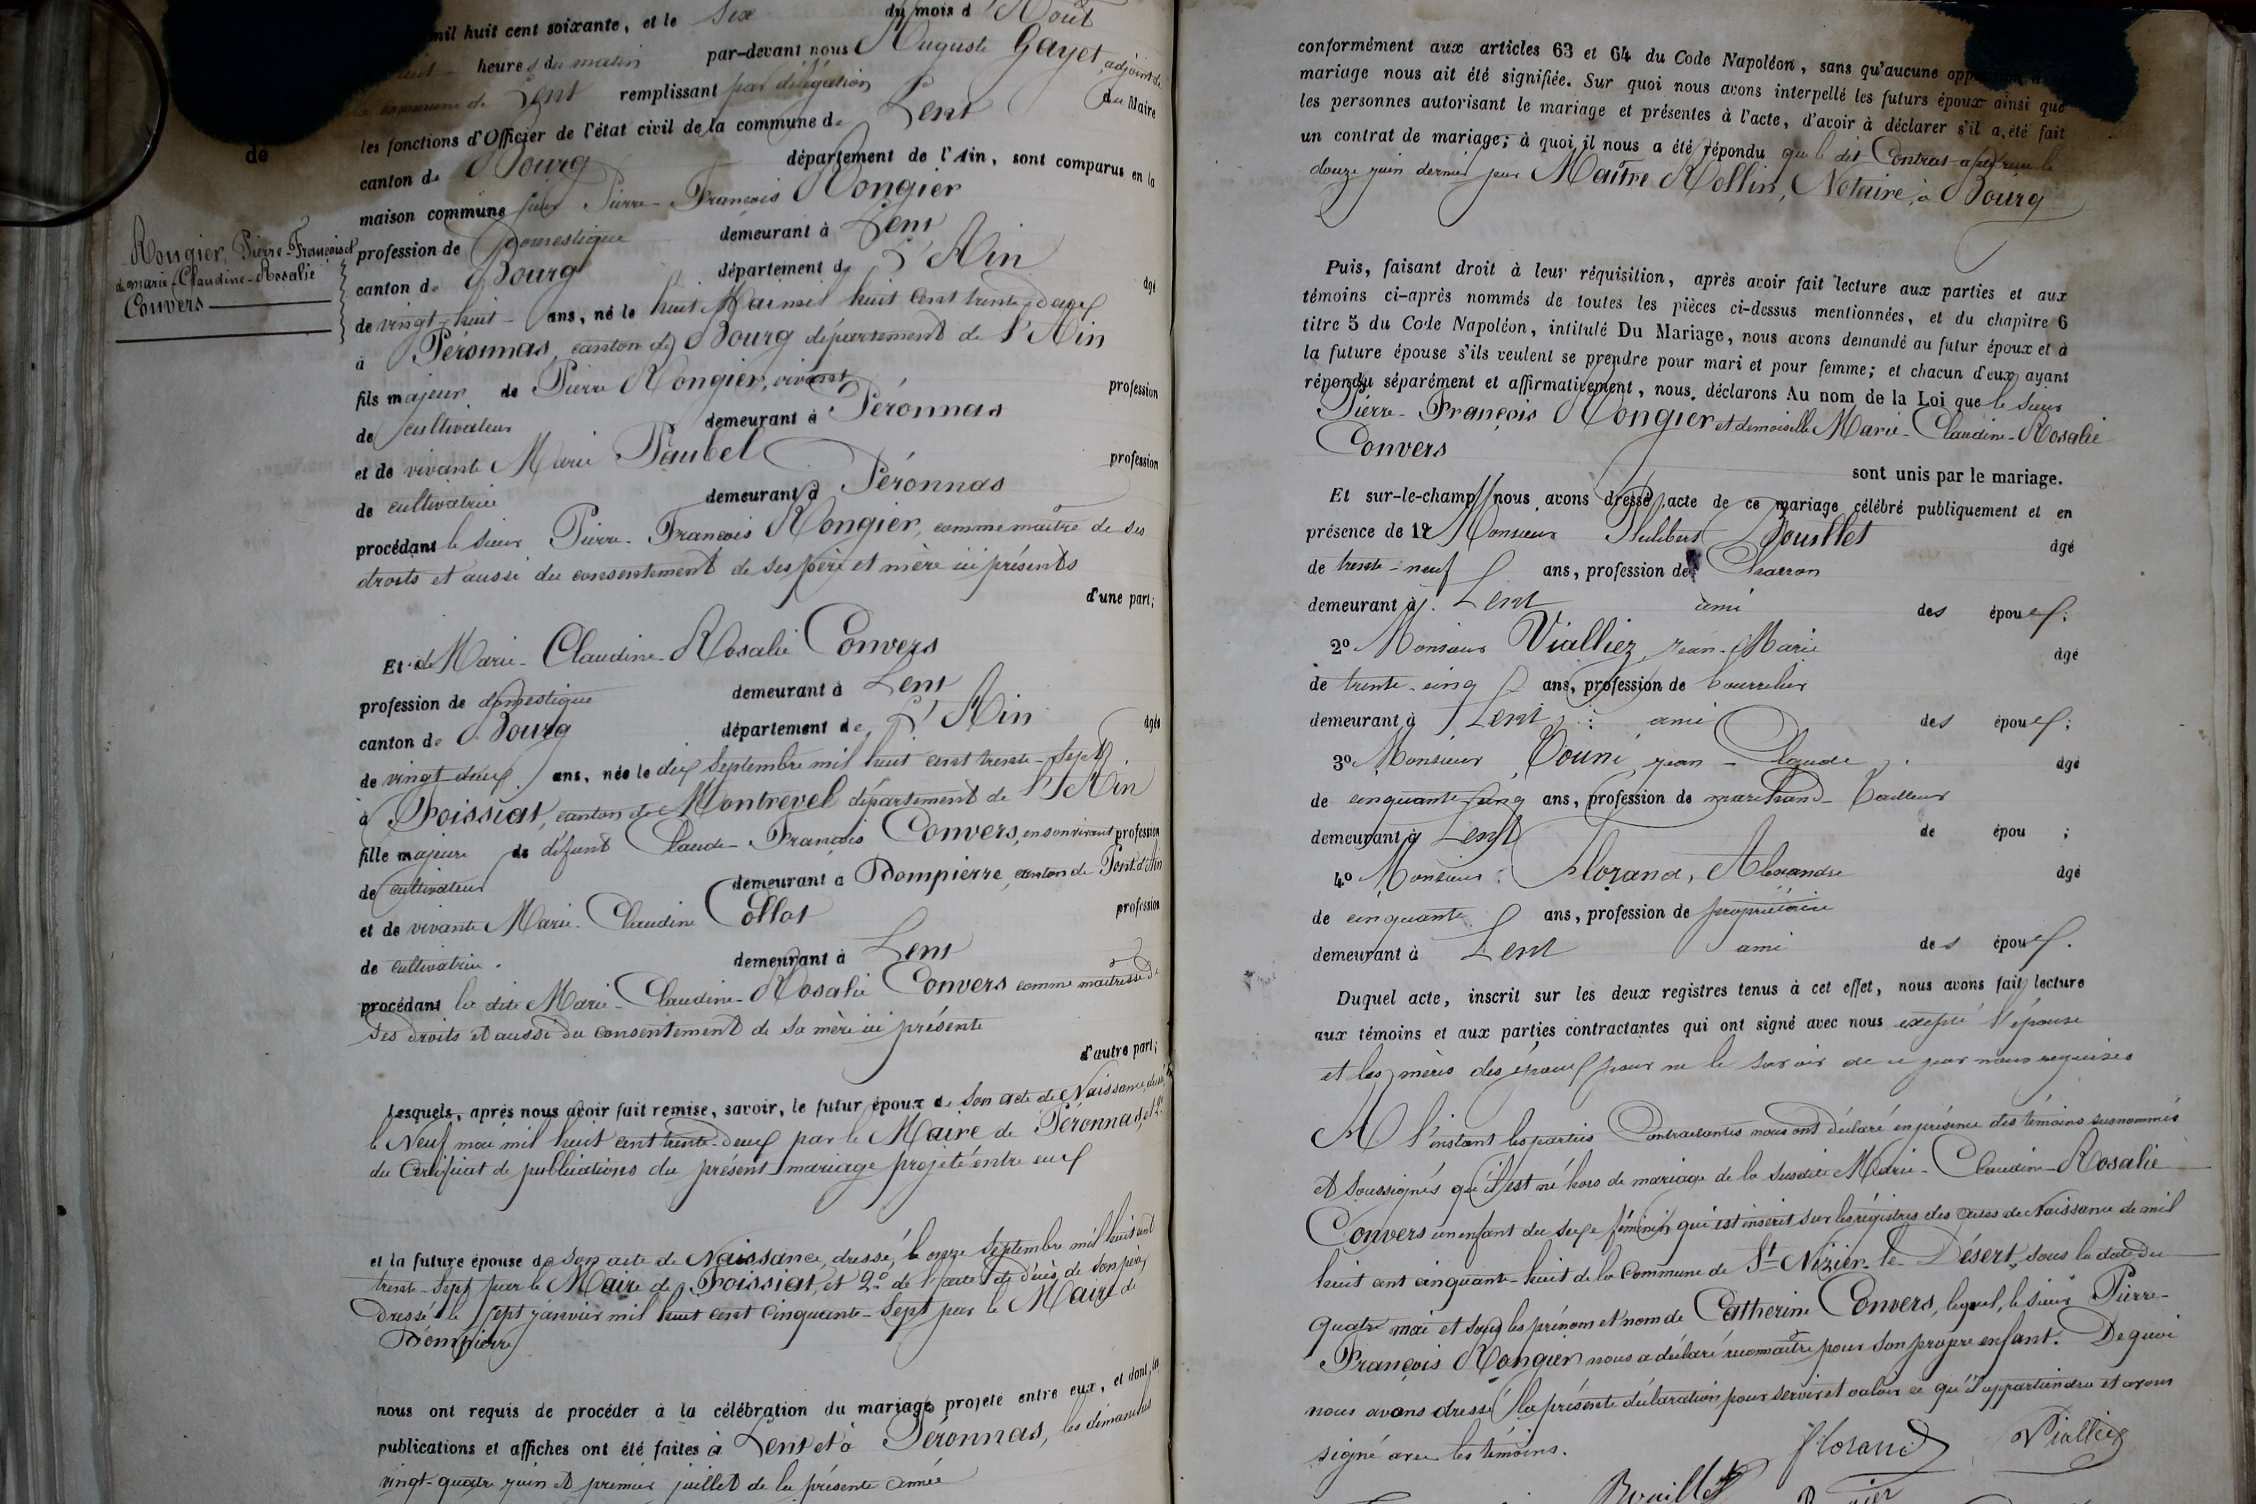 mil huit cent soixante, et le six du mois d'Août
heures du matin par-devant nous Auguste Gayet, adjoint de
la commune de Lent remplissant par délégation du Maire
les fonctions d'Officier de l'état civil de la commune de Lent
canton de Bourg département de l'Ain, sont comparus en la
maison commune sieur Pierre-François Rongier
profession de domestique demeurant à Lent
canton de Bourg département de L'Ain âgé
de vingt-huit ans, né le huit Mai mil huit cent trente-deux
à Péronnas, canton de Bourg département de l'Ain
fils majeur de Pierre Rongier, vivant profession
de cultivateur demeurant à Péronnas
et de vivante Marie Paubel profession
de cultivatrice demeurant à Péronnas
procédant le sieur Pierre-François Rongier, comme maître de ses
droits et aussi du consentement de ses père et mère ici présents
d'une part;
Et de Marie-Claudine-Rosalie Convers
profession de domestique demeurant à Lent
canton de Bourg département de L'Ain âgée
de vingt deux ans, née le dix Septembre mil huit cent trente-sept
à Foissiat, canton de Montrevel département de l'Ain
fille majeure de défunt Claude-François Convers, en son vivant profession
de cultivateur demeurant à Dompierre, canton de Pont-d'Ain
et de vivante Marie-Claudine Collot profession
de cultivatrice. demeurant à Lent
procédant la dite Marie-Claudine-Rosalie Convers comme maîtresse de
ses droits et aussi du consentement de sa mère ici présente
d'autre part;
Lesquels, après nous avoir fait remise, savoir, le futur époux de son acte de Naissance, dressé
le Neuf mai mil huit cent trente-deux par le Maire de Péronnas, et 2º
du Certificat de publications du présent mariage projeté entre eux
et la future épouse de son acte de Naissance, dressé, le onze Septembre mil huit cent
trente-sept par le Maire de Foissiat, et 2º de l'acte de décès de son père,
Dressé le sept janvier mil huit cent cinquante-sept par le Maire de
Dompierre
nous ont requis de procéder à la célébration du mariage projeté entre eux, et dont les
publications et affiches ont été faites à Lent et à Péronnas, les dimanches
vingt-quatre juin et premier juillet de la présente année
de
Rongier, Pierre-François et
de marie-Claudine-Rosalie
Convers
conformément aux articles 63 et 64 du Code Napoléon, sans qu'aucune
mariage nous ait été signifiée. Sur quoi nous avons interpellé les futurs époux ainsi que
les personnes autorisant le mariage et présentes à l'acte, d'avoir à déclarer s'il a été fait
un contrat de mariage; à quoi il nous a été répondu que le dit Contrat a été reçu le
douze juin dernier par Maître Rollin, Notaire, à Bourg
Puis, faisant droit à leur réquisition, après avoir fait lecture aux parties et aux
témoins ci-après nommés de toutes les pièces ci-dessus mentionnées, et du chapitre 6
titre 5 du Code Napoléon, intitulé Du Mariage, nous avons demandé au futur époux et à
la future épouse s'ils veulent se prendre pour mari et pour femme; et chacun d'eux ayant
répondu séparément et affirmativement, nous déclarons Au nom de la Loi que le sieur
Pierre-François Rongier et demoiselle Marie-Claudine-Rosalie
Convers
sont unis par le mariage.
Et sur-le-champ nous avons dressé acte de ce mariage célébré publiquement et en
présence de 1º Monsieur Philibert Bouillet âgé
de trente-neuf ans, profession de Charron
demeurant à Lent ami des époux;
2º Monsieur Vialliez, Jean-Marie âgé
de trente-cinq ans, profession de bourrelier
demeurant à Lent; ami des époux;
3º Monsieur Jean-Claude âgé
de cinquante-cinq ans, profession de marchand-tailleur
demeurant à Lent de épou ;
4º Monsieur Florand, Alexandre âgé
de cinquante ans, profession de propriétaire
demeurant à Lent ami des époux.
Duquel acte, inscrit sur les deux registres tenus à cet effet, nous avons fait lecture
aux témoins et aux parties contractantes qui ont signé avec nous excepté l'épouse
et les mères des époux pour ne le savoir de ce par nous requises
A l'instant les parties Contractantes nous ont déclaré en présence des témoins susnommés
et soussignés qu'il est né hors de mariage de la susdite Marie-Claudine-Rosalie
Convers un enfant du sexe féminin qui est inscrit sur les régistres des actes de Naissance de mil
huit cent cinquante-huit de la Commune de St Nizier-le-Désert, sous la date du
quatre mai et sous les prénom et nom de Catherine Convers, lequel, le sieur Pierre-
François Rongier nous a déclaré reconnaître pour son propre enfant. De quoi
nous avons dressé la présente déclaration pour servir et valoir ce qu'il appartiendra et avons
signé avec les témoins.
Florand Vialliez
Bouillet